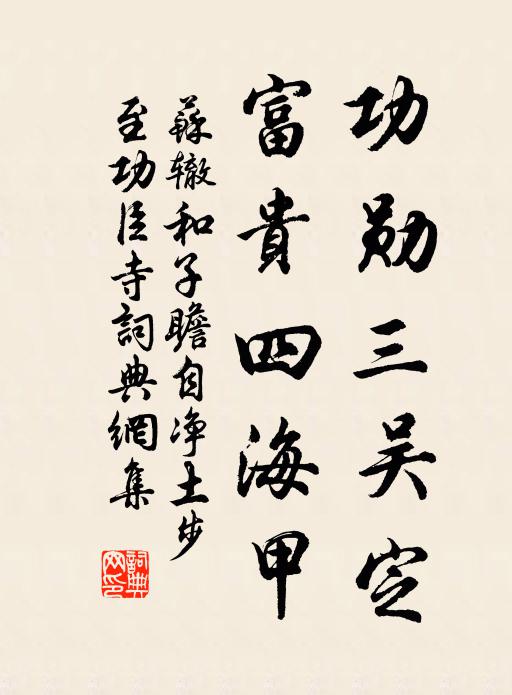 功勋三吴定
富貴四海甲
蘇辙和子瞻自净土步
至功臣寺詞典網集
詞典
网印